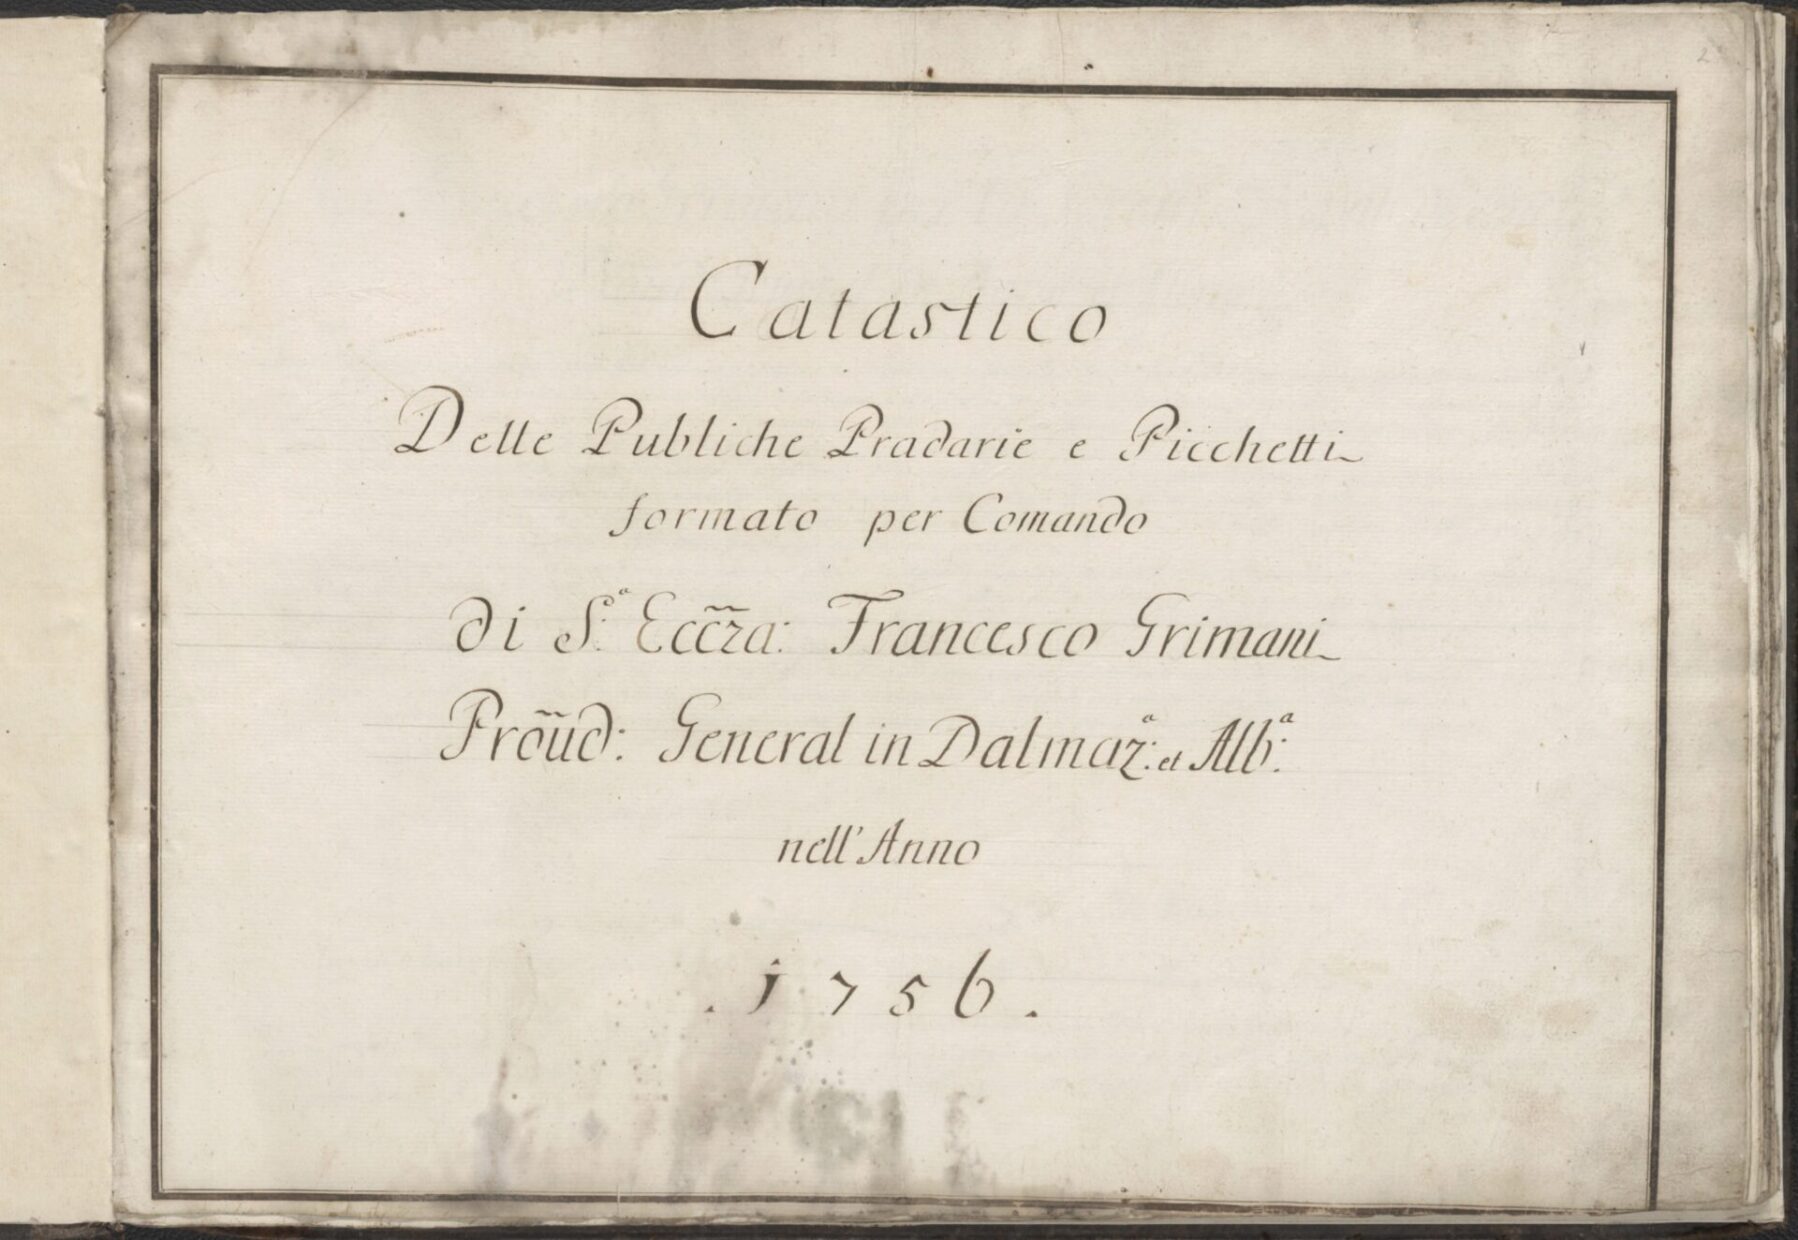 2
Catastico
Delle Publiche Pradarie e Picchetti
formato per Comando
di S:ª Ecc̃za: Francesco Grimani
Prou̅d: General in Dalmaz:ª et Alb:ª
nell'Anno
. 1756 .